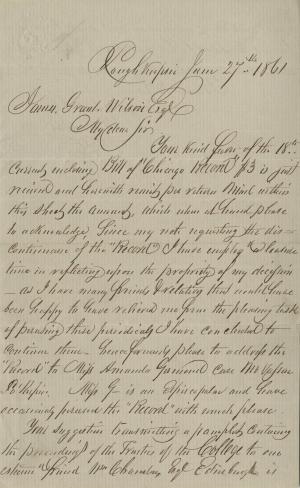 Poughkeepsie June 27th 1861
James Grant Wilson Esqr
My dear Sir
Your kind favor of the 18th
Current enclosing Bill of "Chicago Record" $3 is just
received and herewith remit per return Mail within
this sheet the amount, which when received please
to acknowledge. Since my note requesting the dis-
continuance of the "Record" I have employed a leisure
time in reflecting upon the propriety of my decision
- as I have many friends & relatives that would have
been happy to have relieved me from the pleasing task
of perusing these periodicals I have concluded to
continue them - henceforward please to address the
"Record" to Miss Amanda Germond care M. Vassar
Po'Kepsie. Miss G- is an Episcopalian and have
occasionally perused the "Record" with much pleasure.
Your suggestion transmitting a pamphlet containing
the proceedings of the Trustees of the College to our
esteemed friend Wm Chambers Esqr Edinburgh is